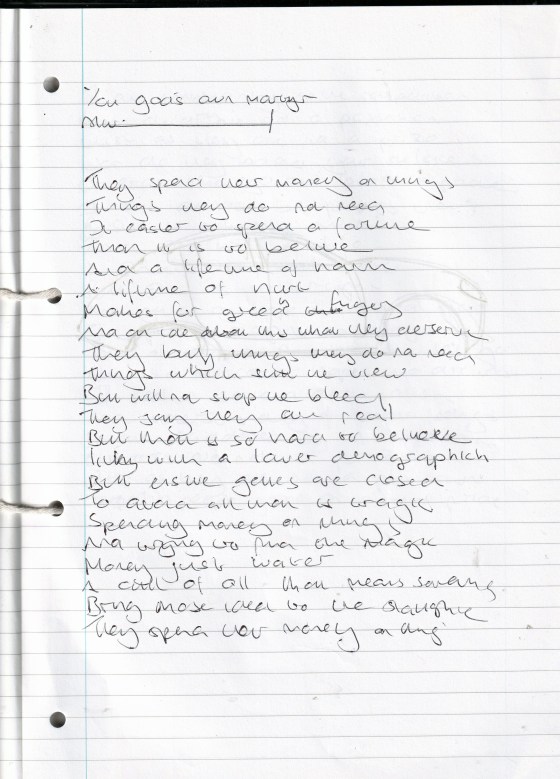 They spend their money on things
Things they do not need
Is easier to spend a fortune
Than it is to believe
And a lifetime of
A lifetime of
Makes for greedy fingers
And an idea this what they deserve
They buy things they do not need
Things which suit the view
But will not stop the bleed
They say they are real
But that is so hard to believe
living with a lower demographich
But gates are closed
To avoid all that is tragic
Spending money on things
And trying to find the magic
Money just water
A of all that means something
Bring those idea to the
They spend their money on thing